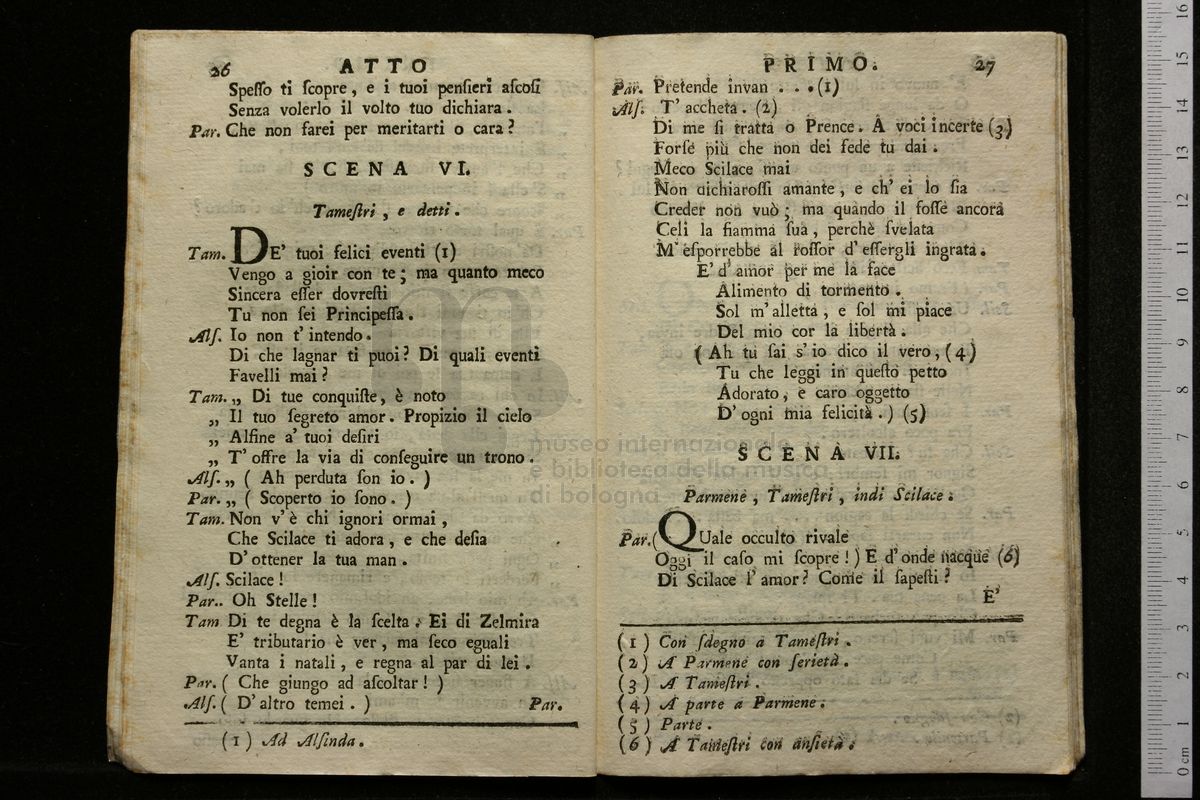 26 ATTO
Speſſo ti ſcopre, e i tuoi penſieri aſcoſi
Senza volerlo il volto tuo dichiara.
Par. Che non farei per meritarti o cara?
SCENA VI.
Tameſtri, e detti.
Tam. DE' tuoi felici eventi (1)
Vengo a gioir con te; ma quanto meco
Sincera eſſer dovreſti
Tu non ſei Principeſſa.
Alſ. Io non t' intendo.
Di che lagnar ti puoi? Di quali eventi
Favelli mai?
Tam. „ Di tue conquiſte, è noto
„ Il tuo ſegreto amor. Propizio il cielo
„ Alfine a' tuoi deſiri
„ T' offre la via di conſeguire un trono.
Alſ. „ ( Ah perduta ſon io. )
Par. „ ( Scoperto io ſono. )
Tam. Non v' è chi ignori ormai,
Che Scilace ti adora, e che deſia
D' ottener la tua man.
Alſ. Scilace!
Par.. Oh Stelle!
Tam Di te degna è la ſcelta. Ei di Zelmira
E' tributario è ver, ma ſeco eguali
Vanta i natali, e regna al par di lei.
Par. ( Che giungo ad aſcoltar! )
Alſ. ( D' altro temei. ) Par.
(1) Ad Alſinda.
PRIMO. 27
Par. Pretende invan . . . (1)
Alſ. T' accheta. (2)
Di me ſi tratta o Prence. A voci incerte (3)
Forſe più che non dei fede tu dai.
Meco Scilace mai
Non dichiaroſſi amante, e ch' ei lo ſia
Creder non vuò; ma quando il foſſe ancora
Celi la fiamma ſua, perchè ſvelata
M' eſporrebbe al roſſor d' eſſergli ingrata.
E' d' amor per me la face
Alimento di tormento.
Sol m' alletta, e ſol mi piace
Del mio cor la libertà.
( Ah tu ſai s' io dico il vero, (4)
Tu che leggi in queſto petto
Adorato, e caro oggetto
D' ogni mia felicità. ) (5)
SCENA VII.
Parmene, Tameſtri, indi Scilace.
Par. ( QUale occulto rivale
Oggi il caſo mi ſcopre! ) E d' onde nacque (6)
Di Scilace l' amor? Come il ſapeſti?
E'
(1) Con ſdegno a Tameſtri.
(2) A Parmene con ſerietà.
(3) A Tameſtri.
(4) A parte a Parmene.
(5) Parte.
(6) A Tameſtri con anſietà.
museo internazionale
e biblioteca della musica
di bologna
0 cm 1 2 3 4 5 6 7 8 9 10 11 12 13 14 15 16